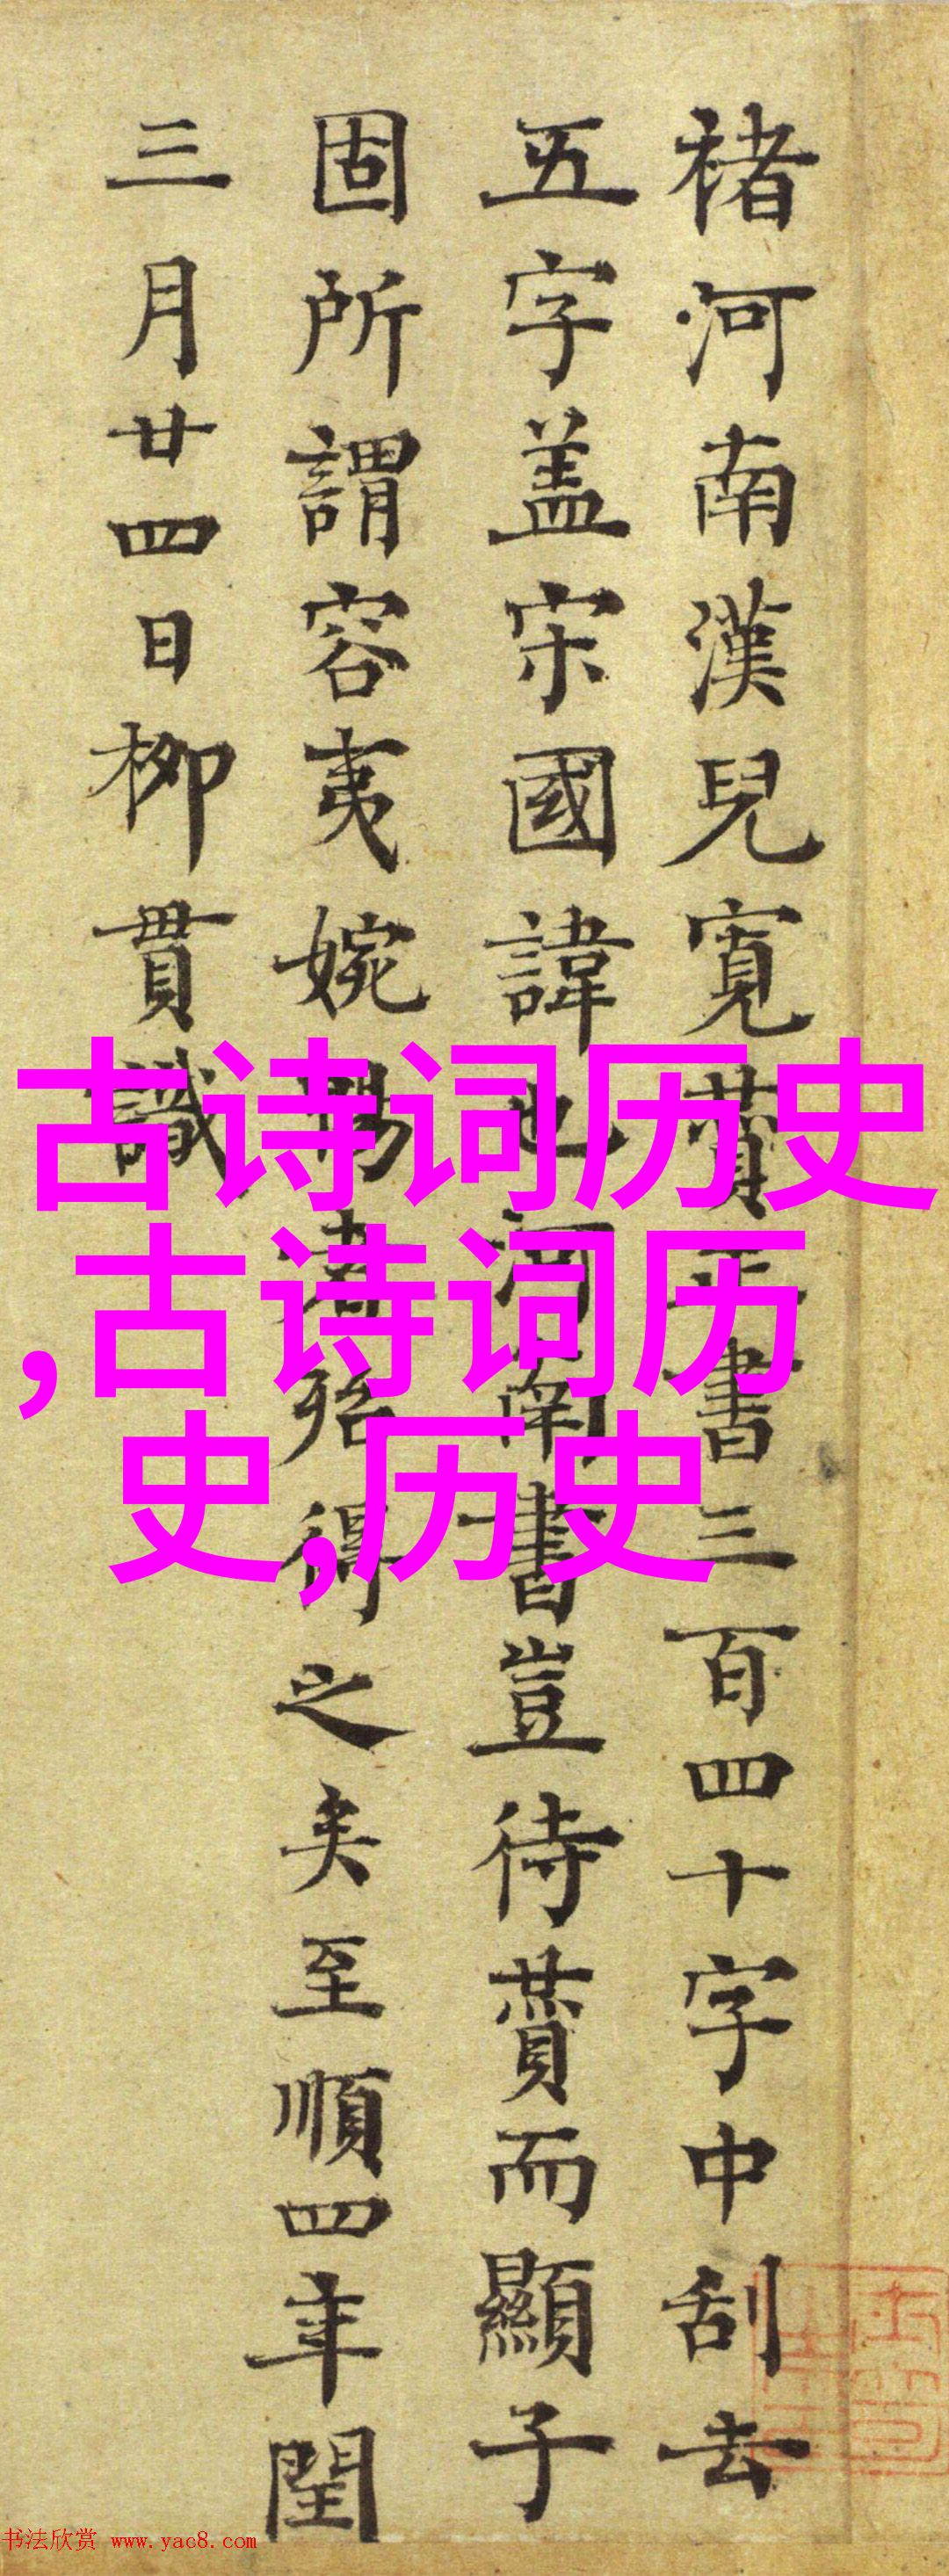 褚河南漢兒寬贊正書三百四十字中刮去
五字盖宋國諱也河南書豈待贊而顯子
固所謂容夷婉暢者殆得之矣至順四年閏
三月廿四日柳貫識
古诗词历史
,古诗词历
史,历史
书法欣赏 www.yac8.com